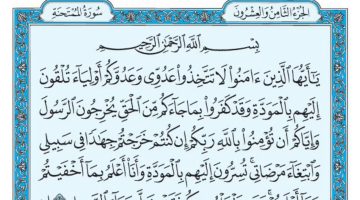 الجزء الثامن والعشرون
سورة الممتحنة
بِسْمِ ٱللَّهِ ٱلرَّحْمَٰنِ ٱلرَّحِيمِ
يَٰٓأَيُّهَا ٱلَّذِينَ ءَامَنُوا۟ لَا تَتَّخِذُوا۟ عَدُوِّى وَعَدُوَّكُمْ أَوْلِيَآءَ تُلْقُونَ
إِلَيْهِم بِٱلْمَوَدَّةِ وَقَدْ كَفَرُوا۟ بِمَا جَآءَكُم مِّنَ ٱلْحَقِّ يُخْرِجُونَ ٱلرَّسُولَ
وَإِيَّاكُمْ أَن تُؤْمِنُوا۟ بِٱللَّهِ رَبِّكُمْ إِن كُنتُمْ خَرَجْتُمْ جِهَٰدًا فِى سَبِيلِى
وَٱبْتِغَآءَ مَرْضَاتِى تُسِرُّونَ إِلَيْهِم بِٱلْمَوَدَّةِ وَأَنَا۠ أَعْلَمُ بِمَآ أَخْفَيْتُمْ